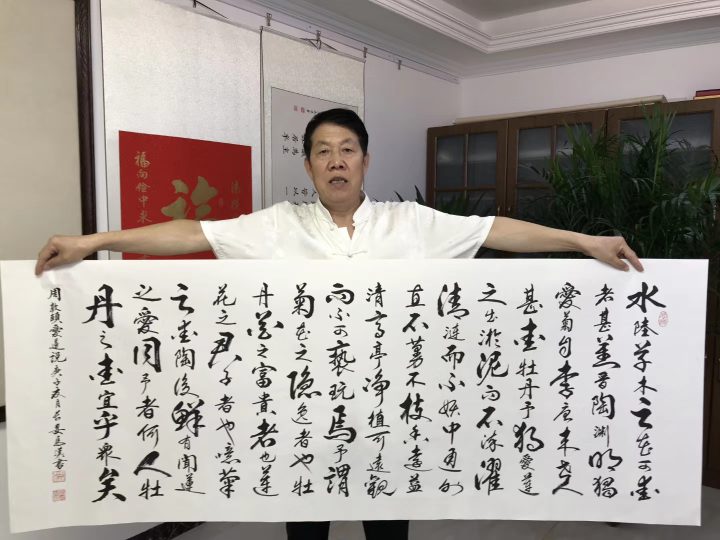 水陸草木之花可愛
者甚蕃晉陶渊明獨
愛菊自李唐来世人
甚愛牡丹予獨愛蓮
之出淤泥而不染濯
清漣而不妖中通外
直不蔓不枝香遠益
清亭亭淨植可遠觀
而不可褻玩焉予謂
菊花之隐逸者也牡
丹花之富貴者也蓮
花之君子者也噫菊
之愛陶後鮮有聞蓮
之愛同予者何人牡
丹之愛宜乎衆矣
周敦頤愛蓮說庚子春月
福向儉中來